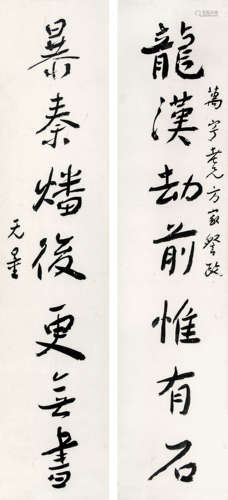 龍漢劫前惟有石
萬字老兄方家正
暴秦燔後更無書
无量